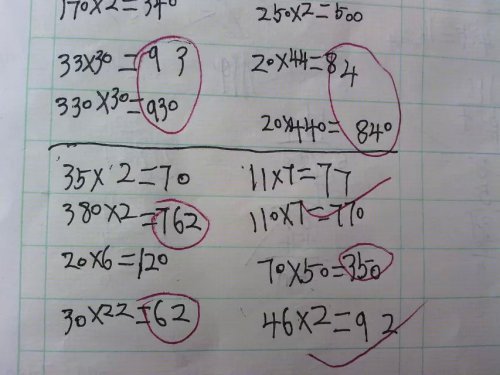 170×2=340 250×2=500
33×30=93 20×44=84
330×30=930 20×440=840
35×2=70 11×7=77
380×2=762 110×7=770
20×6=120 70×50=350
30×22=62 46×2=92